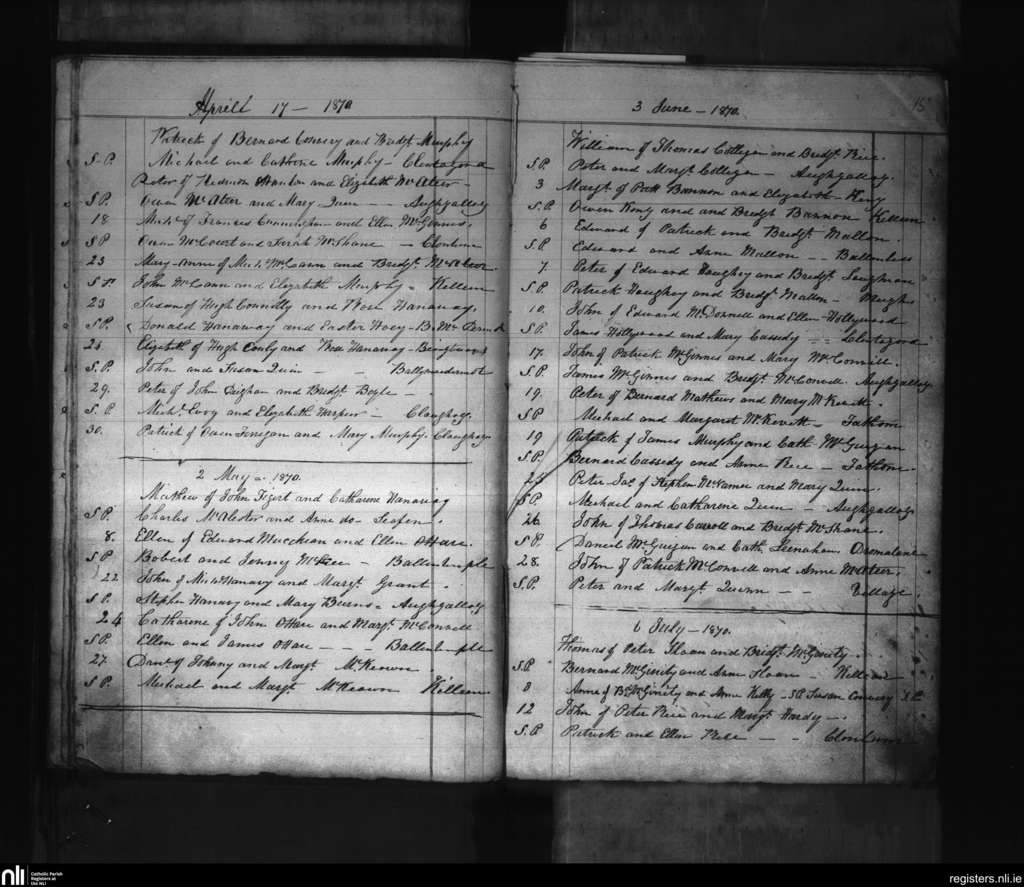 Aprill 17 — 1870
Patrick of Bernard Conrery and Bridgt Murphy
S.P. Michael and Catherine Murphy — Clontagora
Peter of Hanlon and Elizabeth McAteer —
S.P. Owen McAteer and Mary Quin — — Aughgallog
18 Michl of Frances Cunningham and Ellen McGinnis.
S.P. Owen McCourt and Sarah McShane — Clontum
23 Mary-Anne of Michl McCann and Bridgt McAteer.
S.P. John McCann and Elizabeth Murphy — Killeen
23 Susan of Hugh Connolly and Hanaway.
S.P. Donald Hanaway and Easter Hoey —
Elizabeth of Hugh Conly and Hanaway —
S.P. John and Susan Quin — —
29. Peter of John and Bridgt Boyle —
S.P. Michl and Elizabeth Harper — Cloughog.
30. Patrick of Owen Finigan and Mary Murphy. Cloughoge
2 May — 1870.
Mathew of John and Catharine Hanaway
S.P. Charles McAlester and Anne do — Seafin.
8. Ellen of Edward and Ellen OHare.
S.P. Robert and Jenny — Ballintemple
22 John of Michl Hanavy and Margt Grant.
S.P. Stephen Hanavy and Mary Burns — Aughgallog
24 Catharine of John OHare and Margt McConnell
S.P. Ellen and James OHare — — — Ballintemple
27. Danl of Johnny and Margt McKeown
S.P. Michael and Margt McKeown Killeen
15
3 June — 1870.
William of Thomas Collegan and Bridgt Rice.
S.P. Peter and Margt Collegan — Aughgallog.
3 Margt of Patt Bannon and Elizabeth Keny
S.P. Owen and Bridgt Bannon Killeen
6 Edward of Patrick and Bridgt Mallon.
S.P. Edward and Anne Mallon — —
7. Peter of Edward Haughey and Bridgt
S.P. Patrick Haughey and Bridgt Mallon —
10. John of Edward McDonnell and Ellen Hollywood
S.P. James Hollywood and Mary Cassedy — — Clontagora
17. John of Patrick McGinnes and Mary McConvill.
S.P. James McGinnes and Bridgt McConvill. Aughgallog
19. Peter of Bernard Mathews and Mary McKevitt —
S.P. Michael and Margaret McKevitt — Fathom
19 Patrick of James Murphy and Cath McGuigan
S.P. Bernard Cassedy and Anne Rice — Fathom.
25 Peter Jas. of Stephen McNamee and Mary Quinn.
S.P. Michael and Catharine Quinn — Aughgallog
26. John of Thomas Carroll and Bridgt McShane.
S.P. Daniel McGuigan and Cath. Lenahan Dromalane
28. John of Patrick McConvill and Anne McAteer.
S.P. Peter and Margt Quinn — — Village.
6 July — 1870.
Thomas of Peter Sloan and Bridgt McGinity.
S.P. Bernard McGinity and Anne Sloan —
8 Anne of McGinity and Anne Kelly — Susan Conwery
12 John of Peter Rice and Margt Hardy —.
S.P. Patrick and Ellen Rice — — Clontum
nli
Catholic Parish
Registers at
the NLI
registers.nli.ie